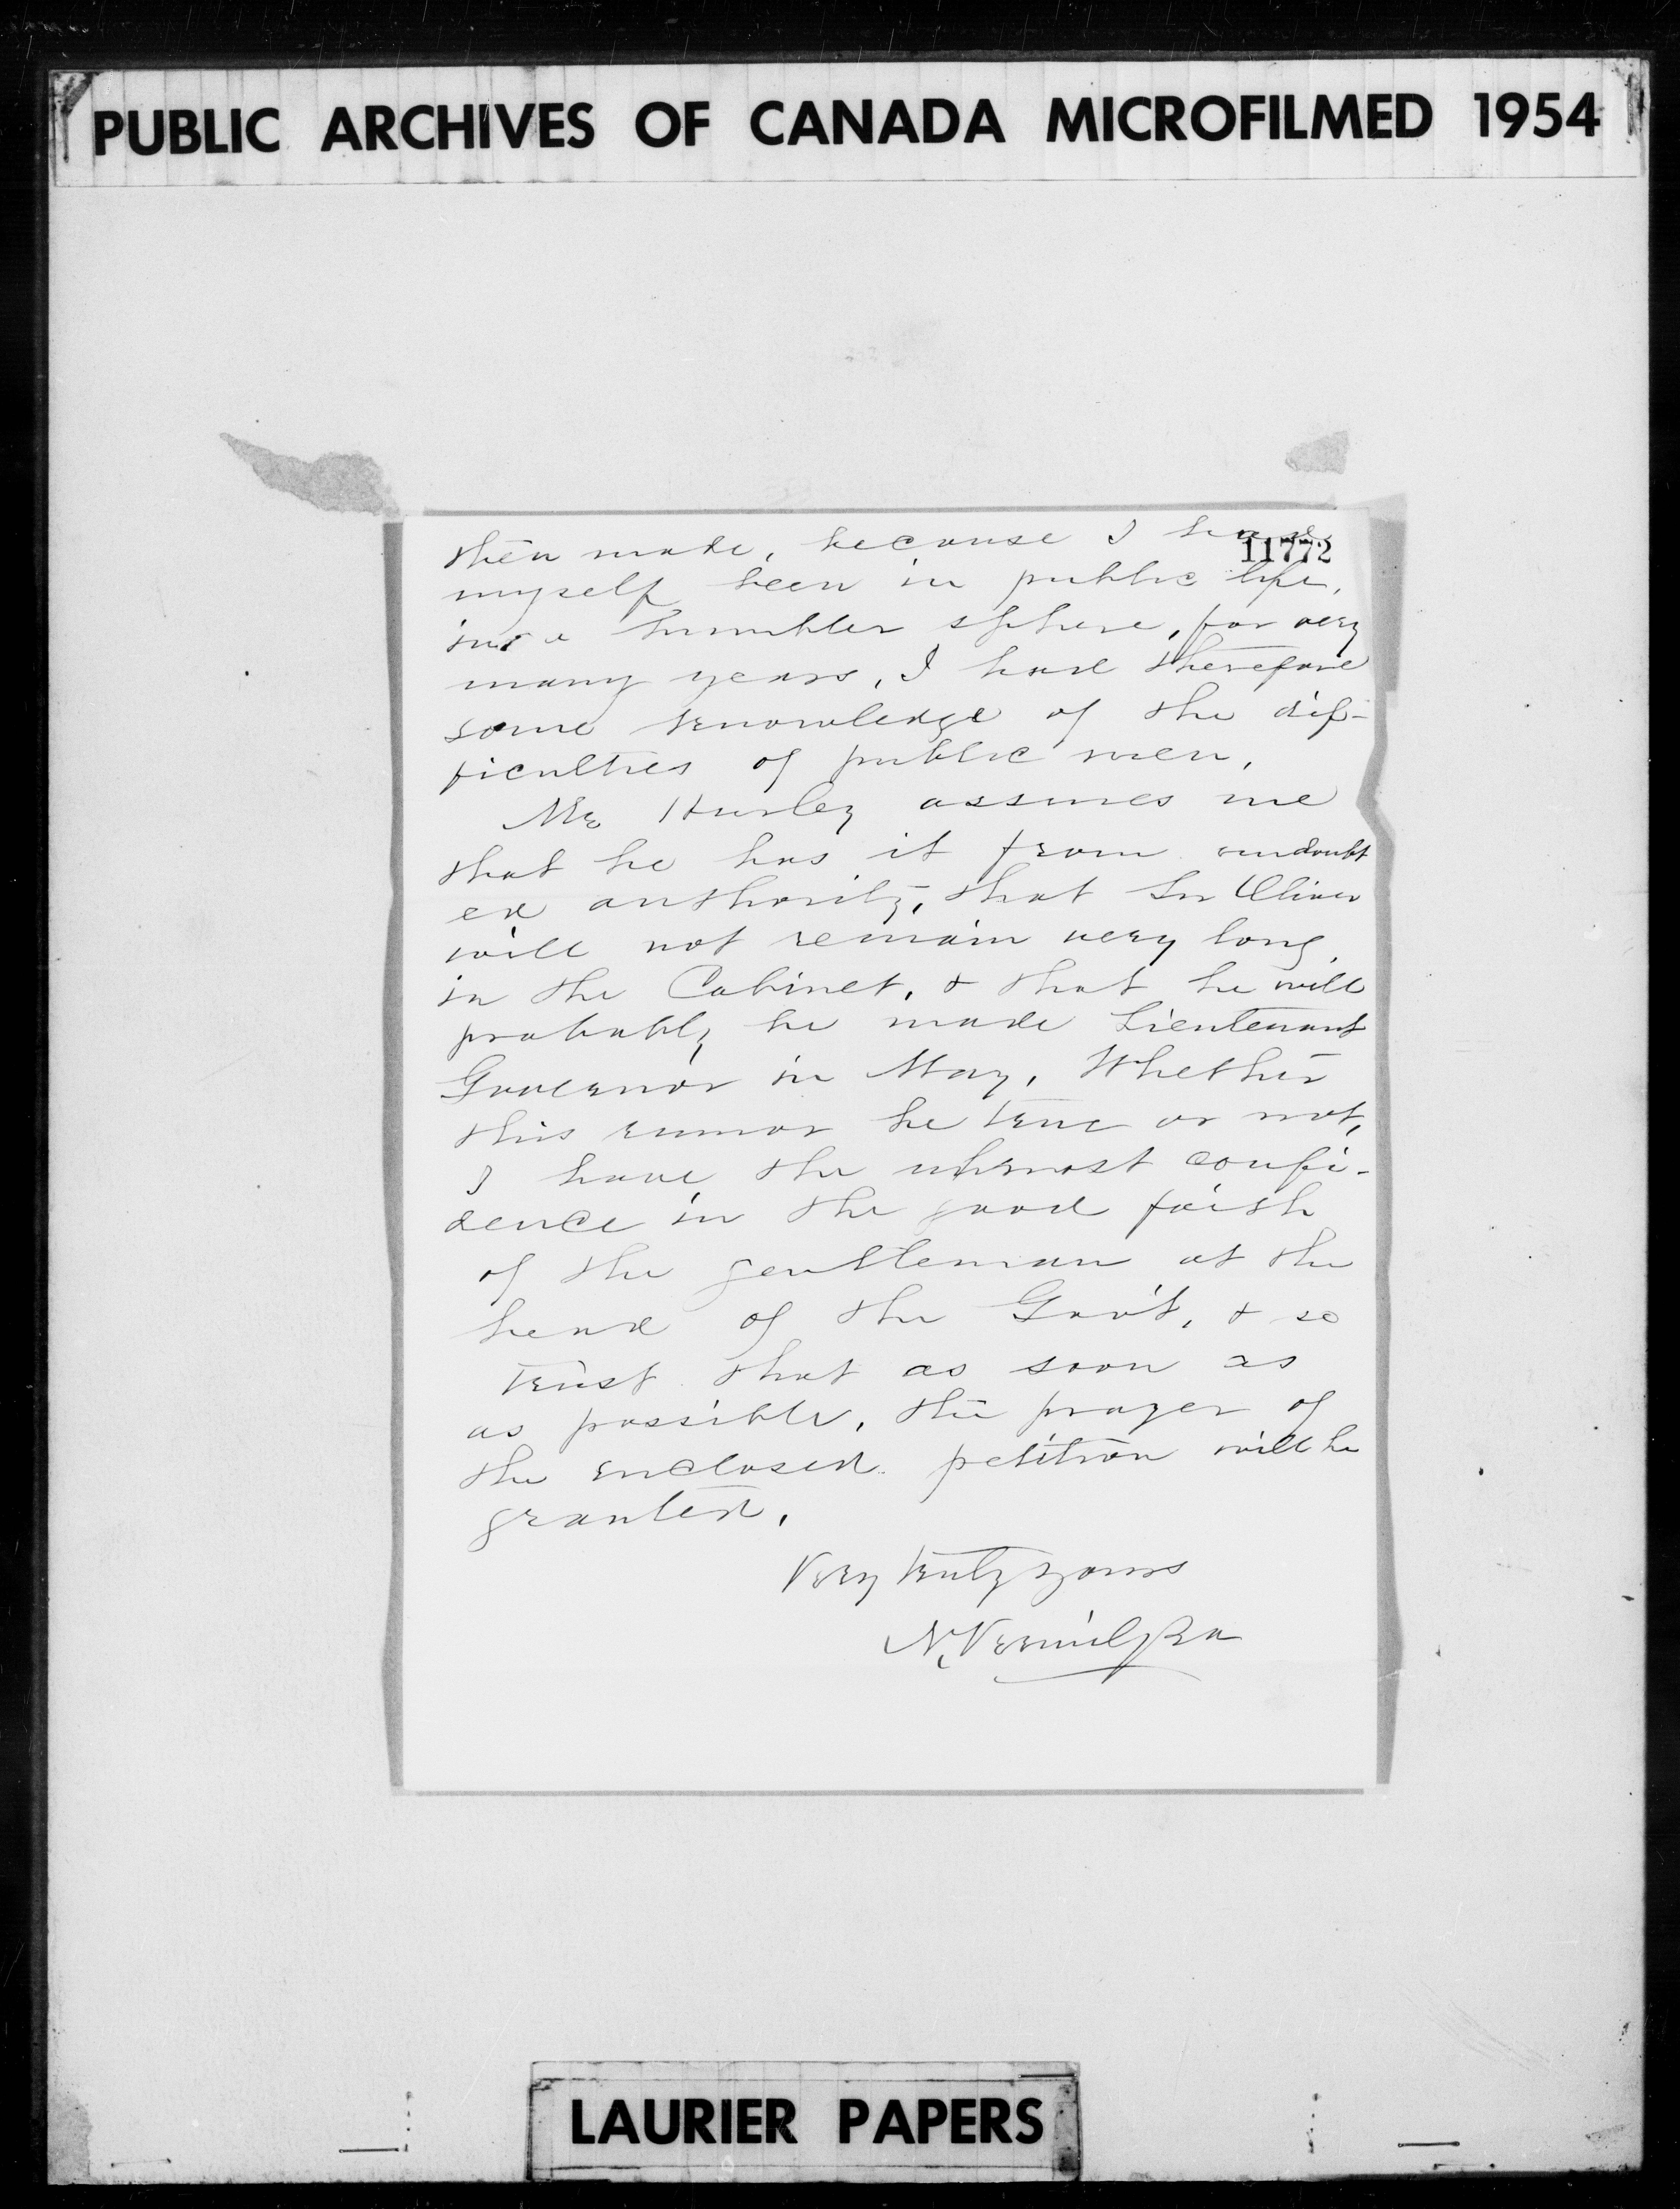 PUBLIC ARCHIVES OF CANADA MICROFILMED 1954
11772
then made, because I have
myself been in public life,
in a humbler sphere, for very
many years, I have therefore
some knowledge of the dif-
ficulties of public men,
Mr Hurley assures me
that he has it from undoubt
ed authority, that Sir Oliver
will not remain very long
in the Cabinet, & that he will
probably be made Lieutenant
Governor in May, Whether
this rumor be true or not,
I have the utmost confi-
dence in the good faith
of the gentleman at the
head of the Gov't, & so
trust that as soon as
as possible, the prayer of
the enclosed petition will be
granted,
Very truly yours
N. Vermilyea
LAURIER PAPERS